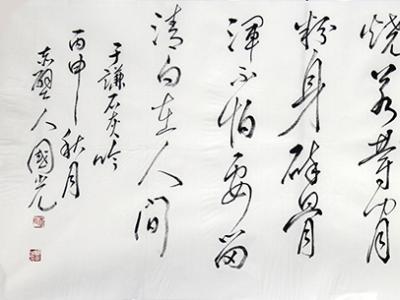 烧若等閒
粉身碎骨
渾不怕要留
清白在人間
于謙石灰吟
丙申秋月
东壁人國光